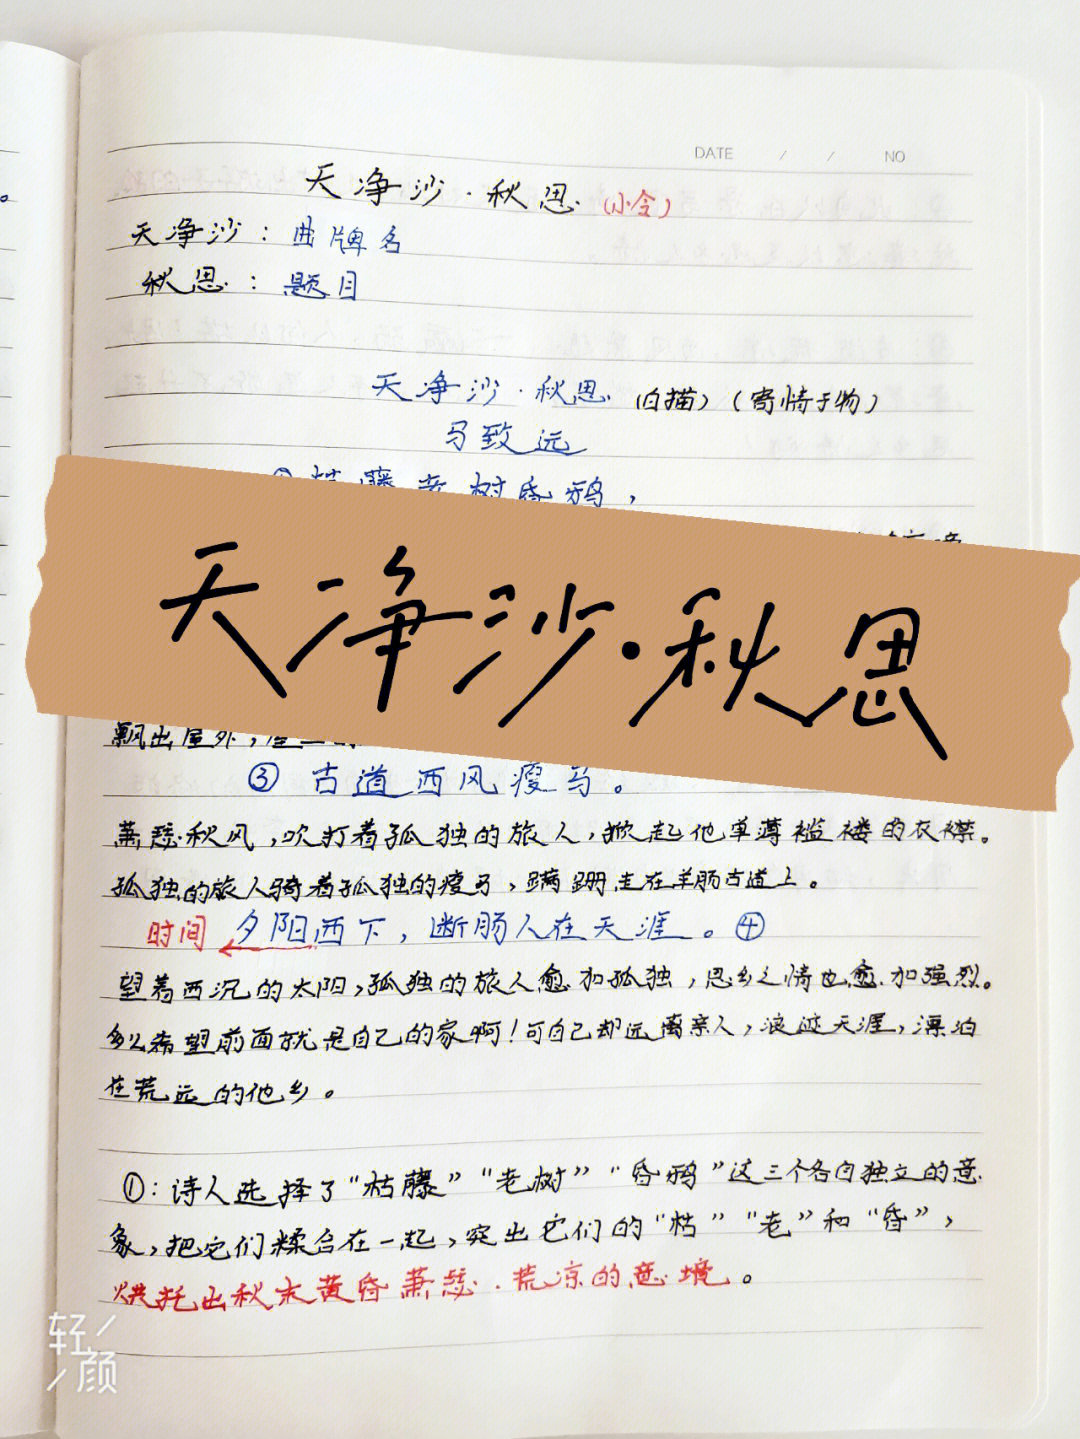 DATE / / NO
天净沙·秋思 (小令)
天净沙：曲牌名
秋思：题目
天净沙·秋思 (白描)(寄情于物)
马致远
枯藤老树昏鸦，
天净沙·秋思
飘出屋外，屋
③ 古道西风瘦马。
萧瑟秋风，吹打着孤独的旅人，掀起他单薄褴褛的衣襟。
孤独的旅人骑着孤独的瘦马，蹒跚走在羊肠古道上。
时间 夕阳西下，断肠人在天涯。④
望着西沉的太阳，孤独的旅人愈加孤独，思乡之情也愈加强烈。
多么希望前面就是自己的家啊！可自己却远离亲人，浪迹天涯，漂泊
在荒远的他乡。
①：诗人选择了“枯藤”“老树”“昏鸦”这三个各自独立的意
象，把它们糅合在一起，突出它们的“枯”“老”和“昏”，
烘托出秋末黄昏萧瑟、荒凉的意境。
轻颜